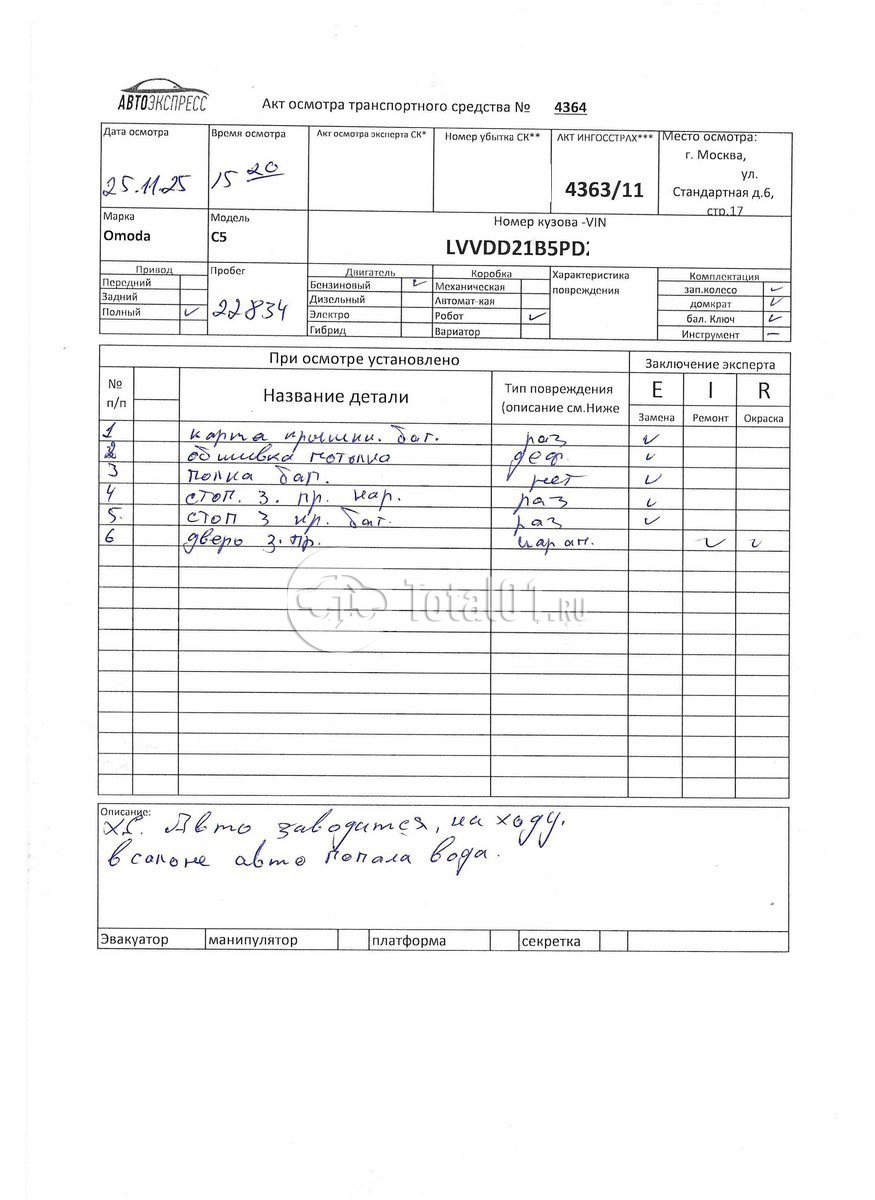 АВТОЭКСПРЕСС
Акт осмотра транспортного средства № 4364
Дата осмотра Время осмотра Акт осмотра эксперта СК* Номер убытка СК** АКТ ИНГОССТРАХ*** Место осмотра:
г. Москва,
25.11.25 15 20 ул.
4363/11 Стандартная д.6,
стр.17
Марка Модель Номер кузова -VIN
Omoda C5 LVVDD21B5PD
Привод Пробег Двигатель Коробка Характеристика повреждения Комплектация
Передний Бензиновый ✓ Механическая зап.колесо ✓
Задний Дизельный Автомат-кая домкрат ✓
Полный ✓ 22834 Электро Робот ✓ бал. Ключ ✓
Гибрид Вариатор Инструмент –
При осмотре установлено Заключение эксперта
№ п/п Название детали Тип повреждения (описание см.Ниже E I R
Замена Ремонт Окраска
1 карта крышки. баг. раз ✓
2 обшивка потолка деф. ✓
3 полка баг. нет ✓
4 стоп. з. пр. нар. раз ✓
5. стоп з пр. баг. раз ✓
6 дверь з. пр. царап. ✓ ✓
Total01.RU
Описание:
Авто заводится, на ходу.
в салоне авто попала вода.
Эвакуатор манипулятор платформа секретка